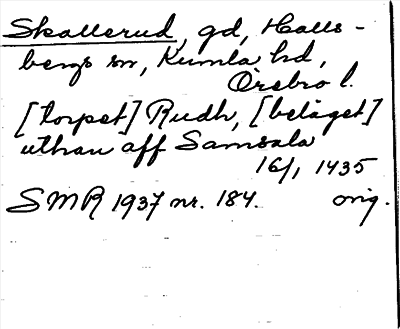 Skallerud, gd, Halls-
bergs sn, Kumla hd,
Örebro l.
[torpet] Rudh, [beläget]
uthan aff Samsala
16/1 1435
SMR 1937 nr. 184. orig.